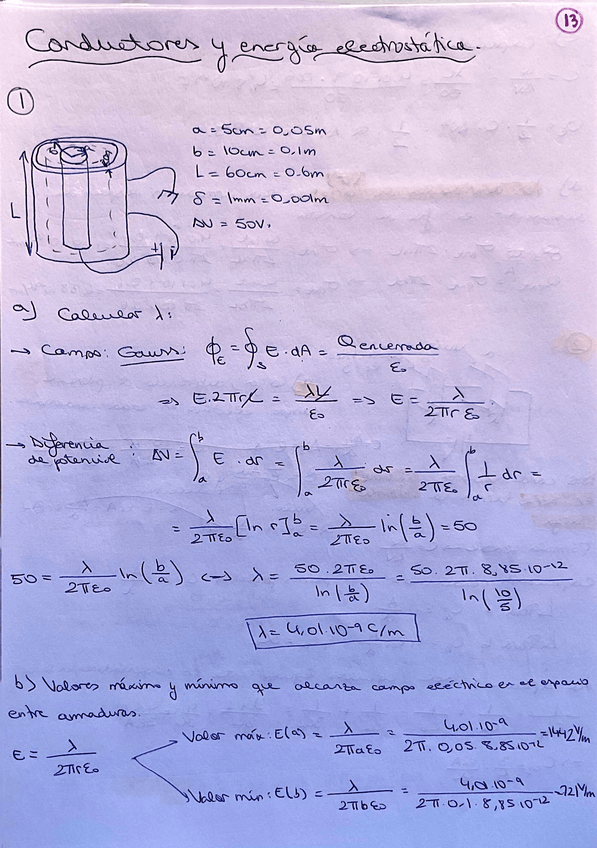 13
Conductores y energía electrostática.
1
a = 5cm = 0,05m
b = 10cm = 0,1m
L = 60cm = 0,6m
δ = 1mm = 0,001m
ΔV = 50V.
L
a) Calcular λ:
→ Campo: Gauss: ϕ_E = ∮_S E · dA = Q encerrada / ε₀
⇒ E·2πrL = λL / ε₀ ⇒ E = λ / 2πrε₀
→ Diferencia de potencial : ΔV = ∫_a^b E · dr = ∫_a^b λ / 2πrε₀ dr = λ / 2πε₀ ∫_a^b 1/r dr =
= λ / 2πε₀ [ln r]_a^b = λ / 2πε₀ ln(b/a) = 50
50 = λ / 2πε₀ ln(b/a) ↔ λ = 50·2πε₀ / ln(b/a) = 50·2π·8,85·10⁻¹² / ln(10/5)
λ = 4,01·10⁻⁹ C/m
b) Valores máximo y mínimo que alcanza campo eléctrico en el espacio
entre armaduras.
E = λ / 2πrε₀
Valor máx: E(a) = λ / 2πaε₀ = 4,01·10⁻⁹ / 2π·0,05·8,85·10⁻¹² = 1442 V/m
Valor mín: E(b) = λ / 2πbε₀ = 4,01·10⁻⁹ / 2π·0,1·8,85·10⁻¹² = 721 V/m